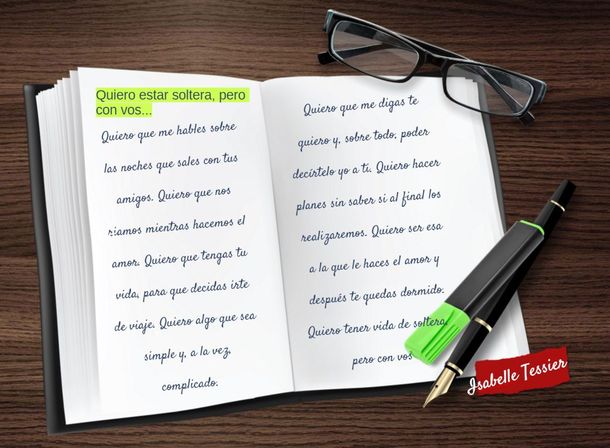 Quiero estar soltera, pero
con vos...
Quiero que me hables sobre
las noches que sales con tus
amigos. Quiero que nos
riamos mientras hacemos el
amor. Quiero que tengas tu
vida, para que decidas irte
de viaje. Quiero algo que sea
simple y, a la vez,
complicado.
Quiero que me digas te
quiero y, sobre todo, poder
decírtelo yo a tí. Quiero hacer
planes sin saber si al final los
realizaremos. Quiero ser esa
a la que le haces el amor y
después te quedas dormido.
Quiero tener vida de soltera,
pero con vos
Isabelle Tessier